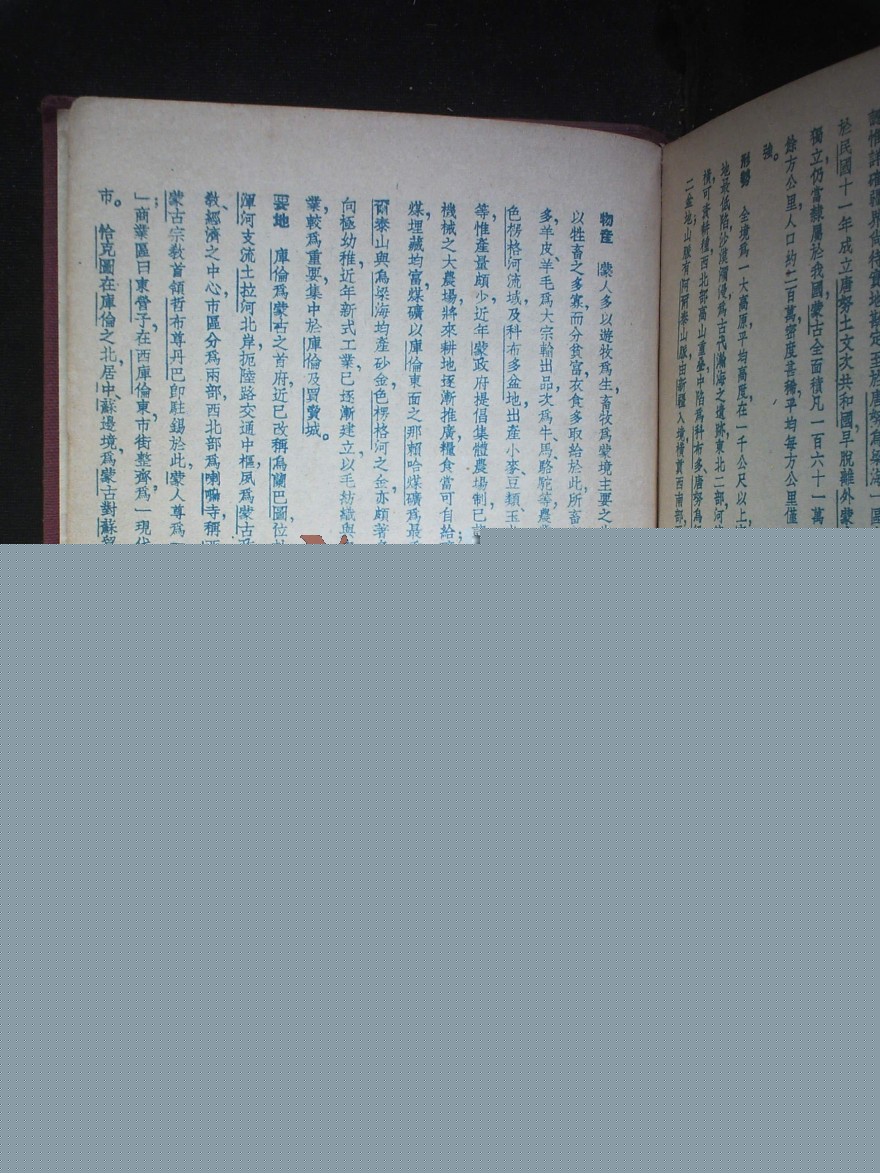 於民國十一年成立唐努土文次共和國早脫離外蒙
獨立仍當隸屬於我國蒙古全面積凡一百六十一萬
餘方公里，人口約二百萬，密度甚稀，平均每方公里僅
強。
形勢　全境爲一大高原，平均高度在一千公尺以上
地最低陷，沙漠瀰漫，爲古代瀚海之遺跡，東北二部，河
積可資耕植；西北部高山重疊，中陷爲科布多、唐努烏
二盆地，山脈有阿爾泰山脈，由新疆入境，橫貫西南部
物產　蒙人多以遊牧爲生，畜牧爲蒙境主要之
以牲畜之多寡，而分貧富，衣食多取給於此，所畜
多，羊皮、羊毛爲大宗輸出品，次爲牛馬駱駝等，農
色楞格河流域及科布多盆地，出產小麥、豆類、玉
等，惟產量頗少，近年蒙政府提倡集體農場制，已
機械之大農場，將來耕地逐漸推廣，糧食當可自給；
煤埋藏均富，煤礦以庫倫東面之那賴哈煤礦爲最
爾泰山與烏梁海均產砂金，色楞格河之金，亦頗著
向極幼稚，近年新式工業，已逐漸建立，以毛紡織與
業，較爲重要，集中於庫倫及買賣城。
要地　庫倫爲蒙古之首府，近已改稱烏蘭巴圖，位
渾河支流土拉河北岸，扼陸路交通中樞，夙爲蒙古
教、經濟之中心，市區分爲兩部，西北部爲喇嘛寺，稱
蒙古宗教首領哲布尊丹巴卽駐錫於此，蒙人尊爲
；商業區曰東營子，在西庫倫東，市街整齊，爲一現代
市。恰克圖在庫倫之北，居中、蘇邊境，爲蒙古對蘇